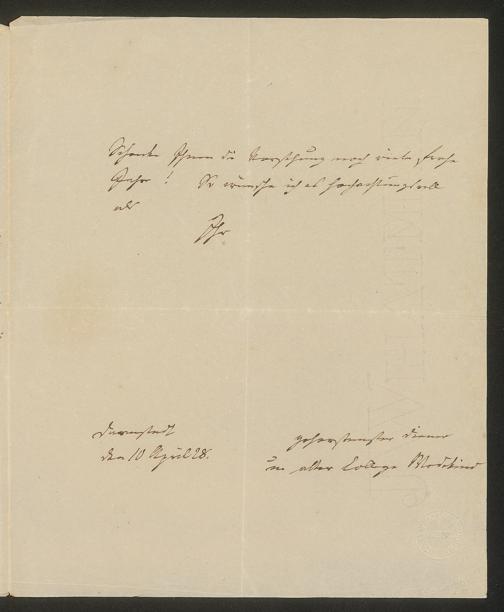 Schenke Ihnen die Vorsehung noch viele frohe
Jahre! So wünsche ich es hochachtungsvoll
als
Ihr
Darmstadt
den 10 April 28.
gehorsamster Diener
u. alter College Wedekind